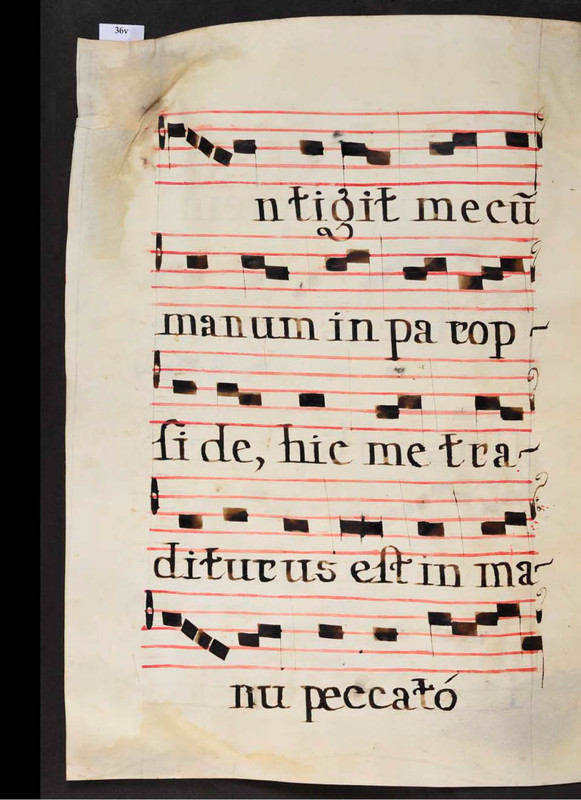 36v
ntigit mecũ
manum in pa rop -
ſi de, hic me tra-
diturus eſt in ma-
nu peccató